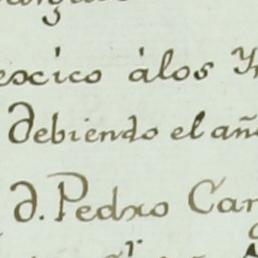 excico àlos
Debiendo el año
D. Pedro Car